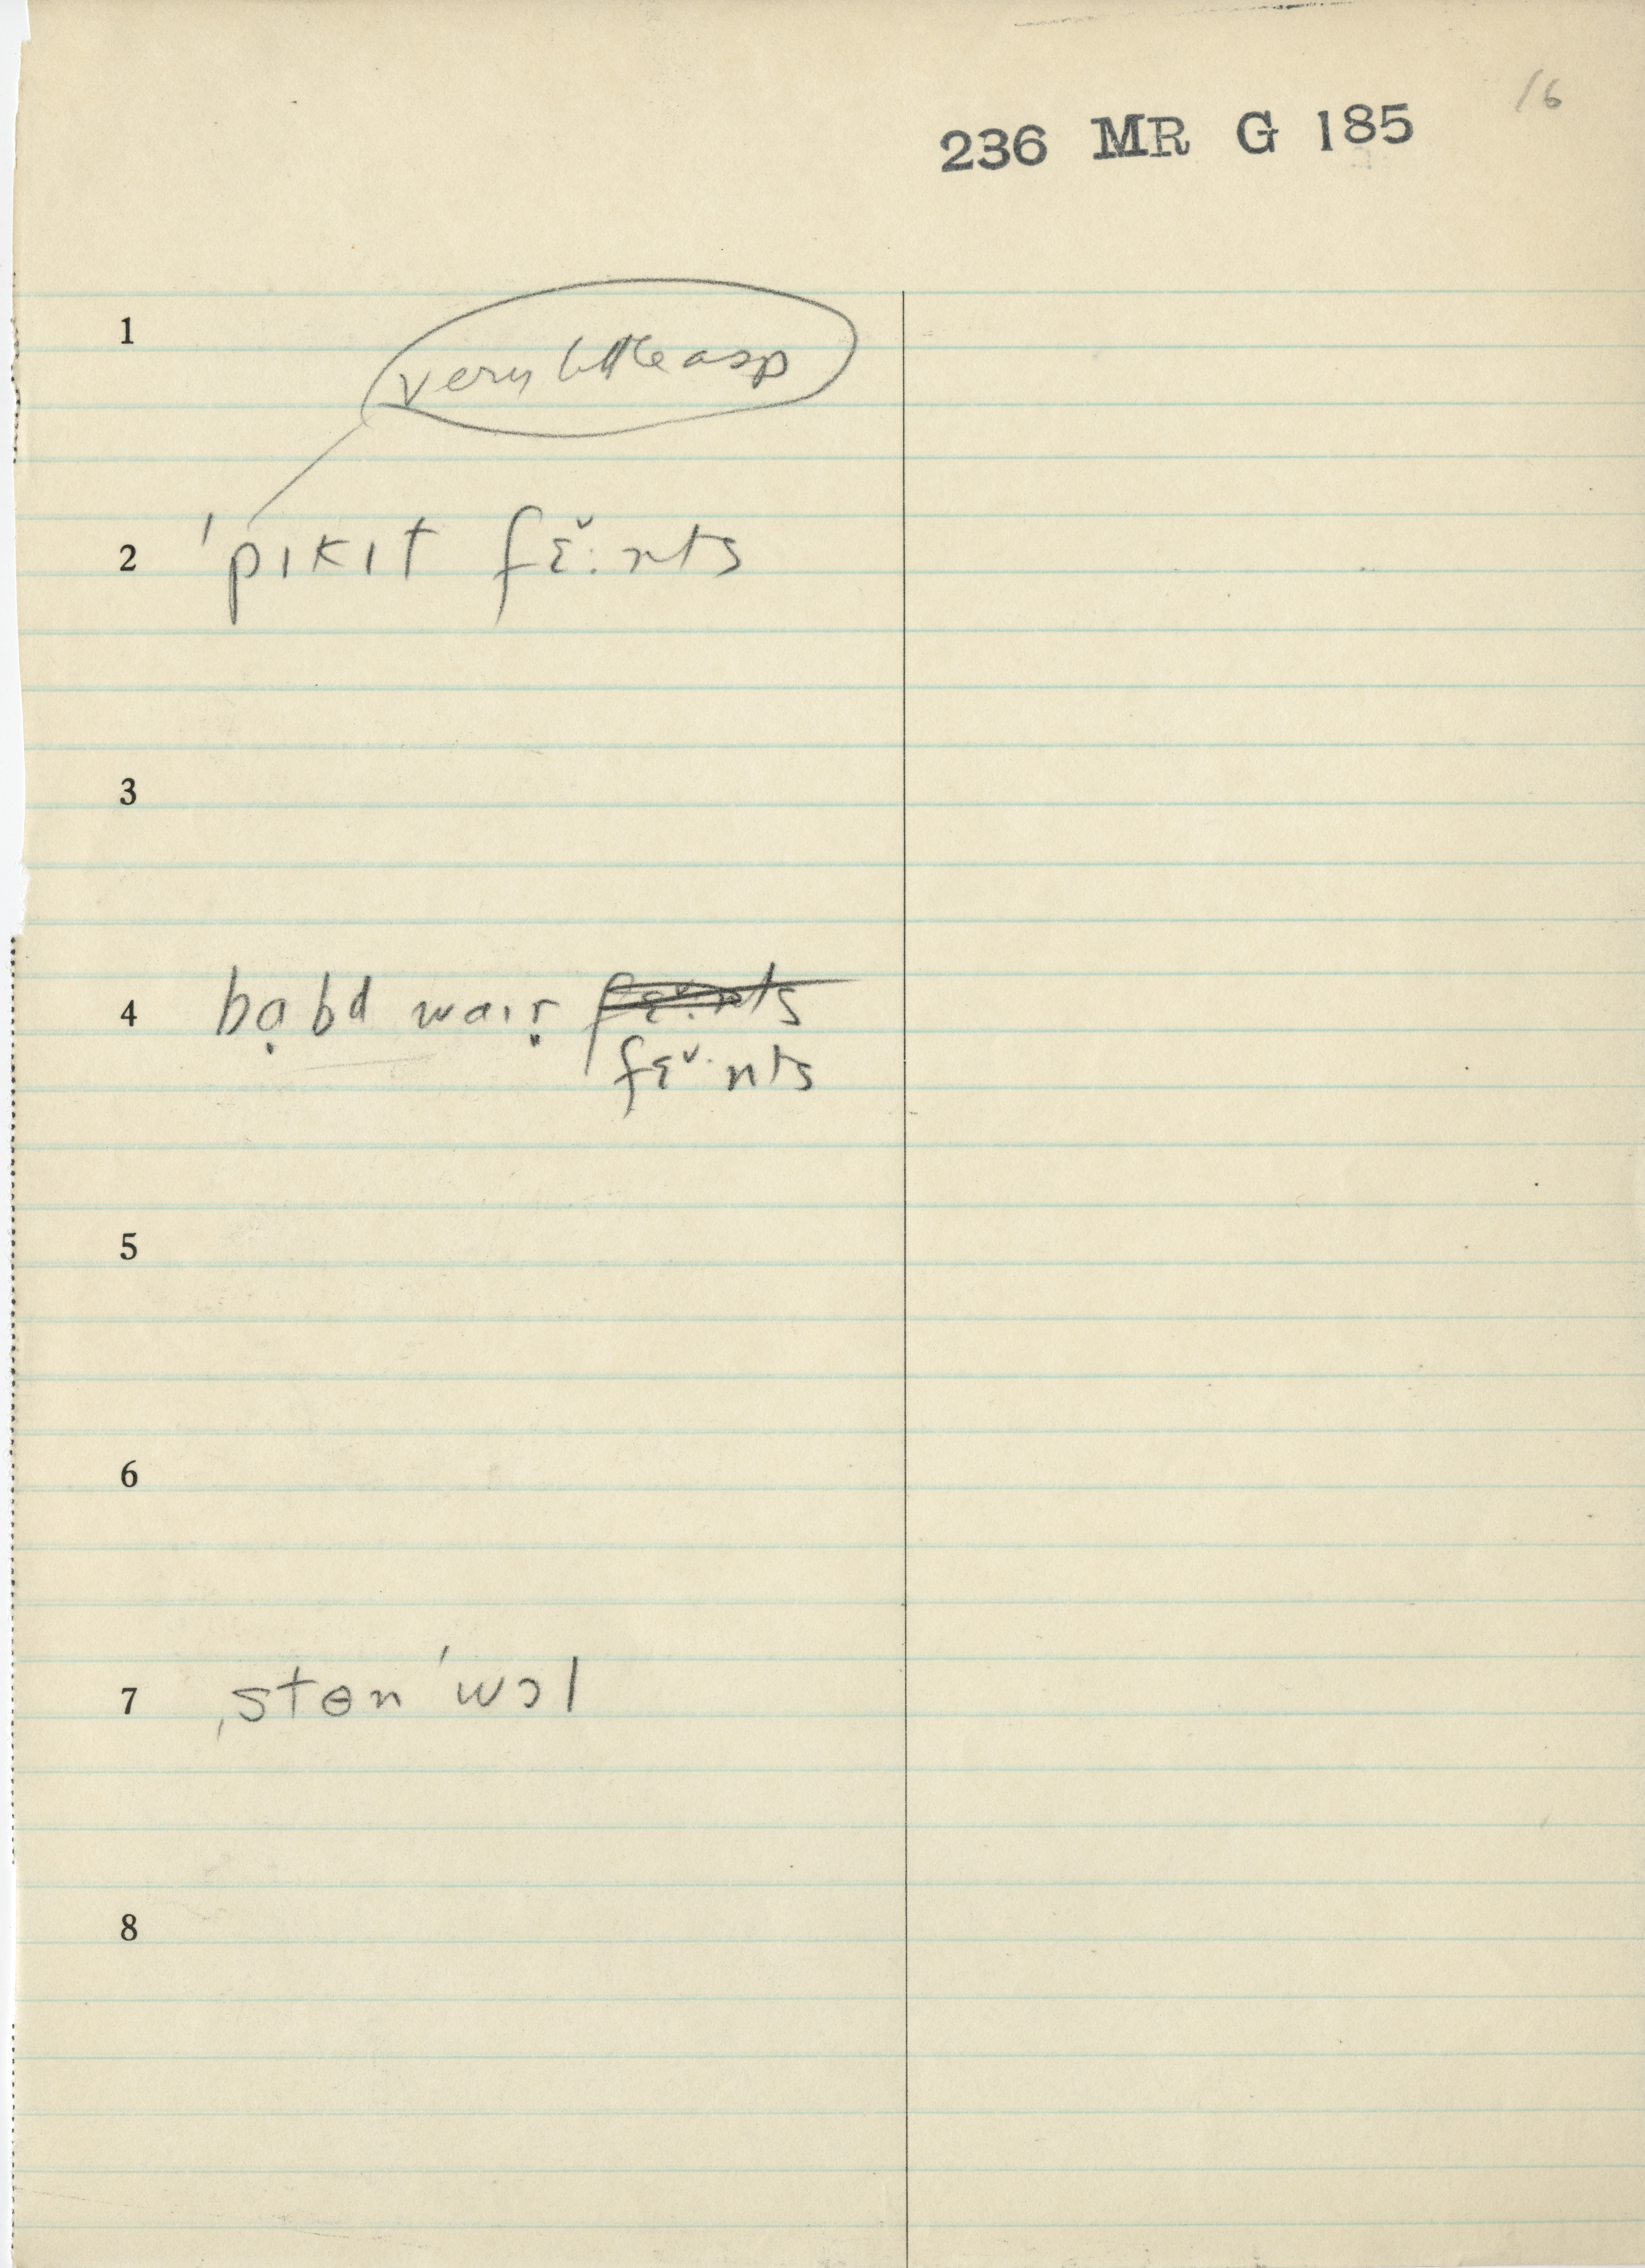 16
236 MR G 185
1
very little asp
2 ˈpɪkɪt fɛ̆·nts
3
4 bạbd waɪṛ fɛ̆·nts
fɛ̆·nts
5
6
7 ˌstɵn ˈwɔl
8